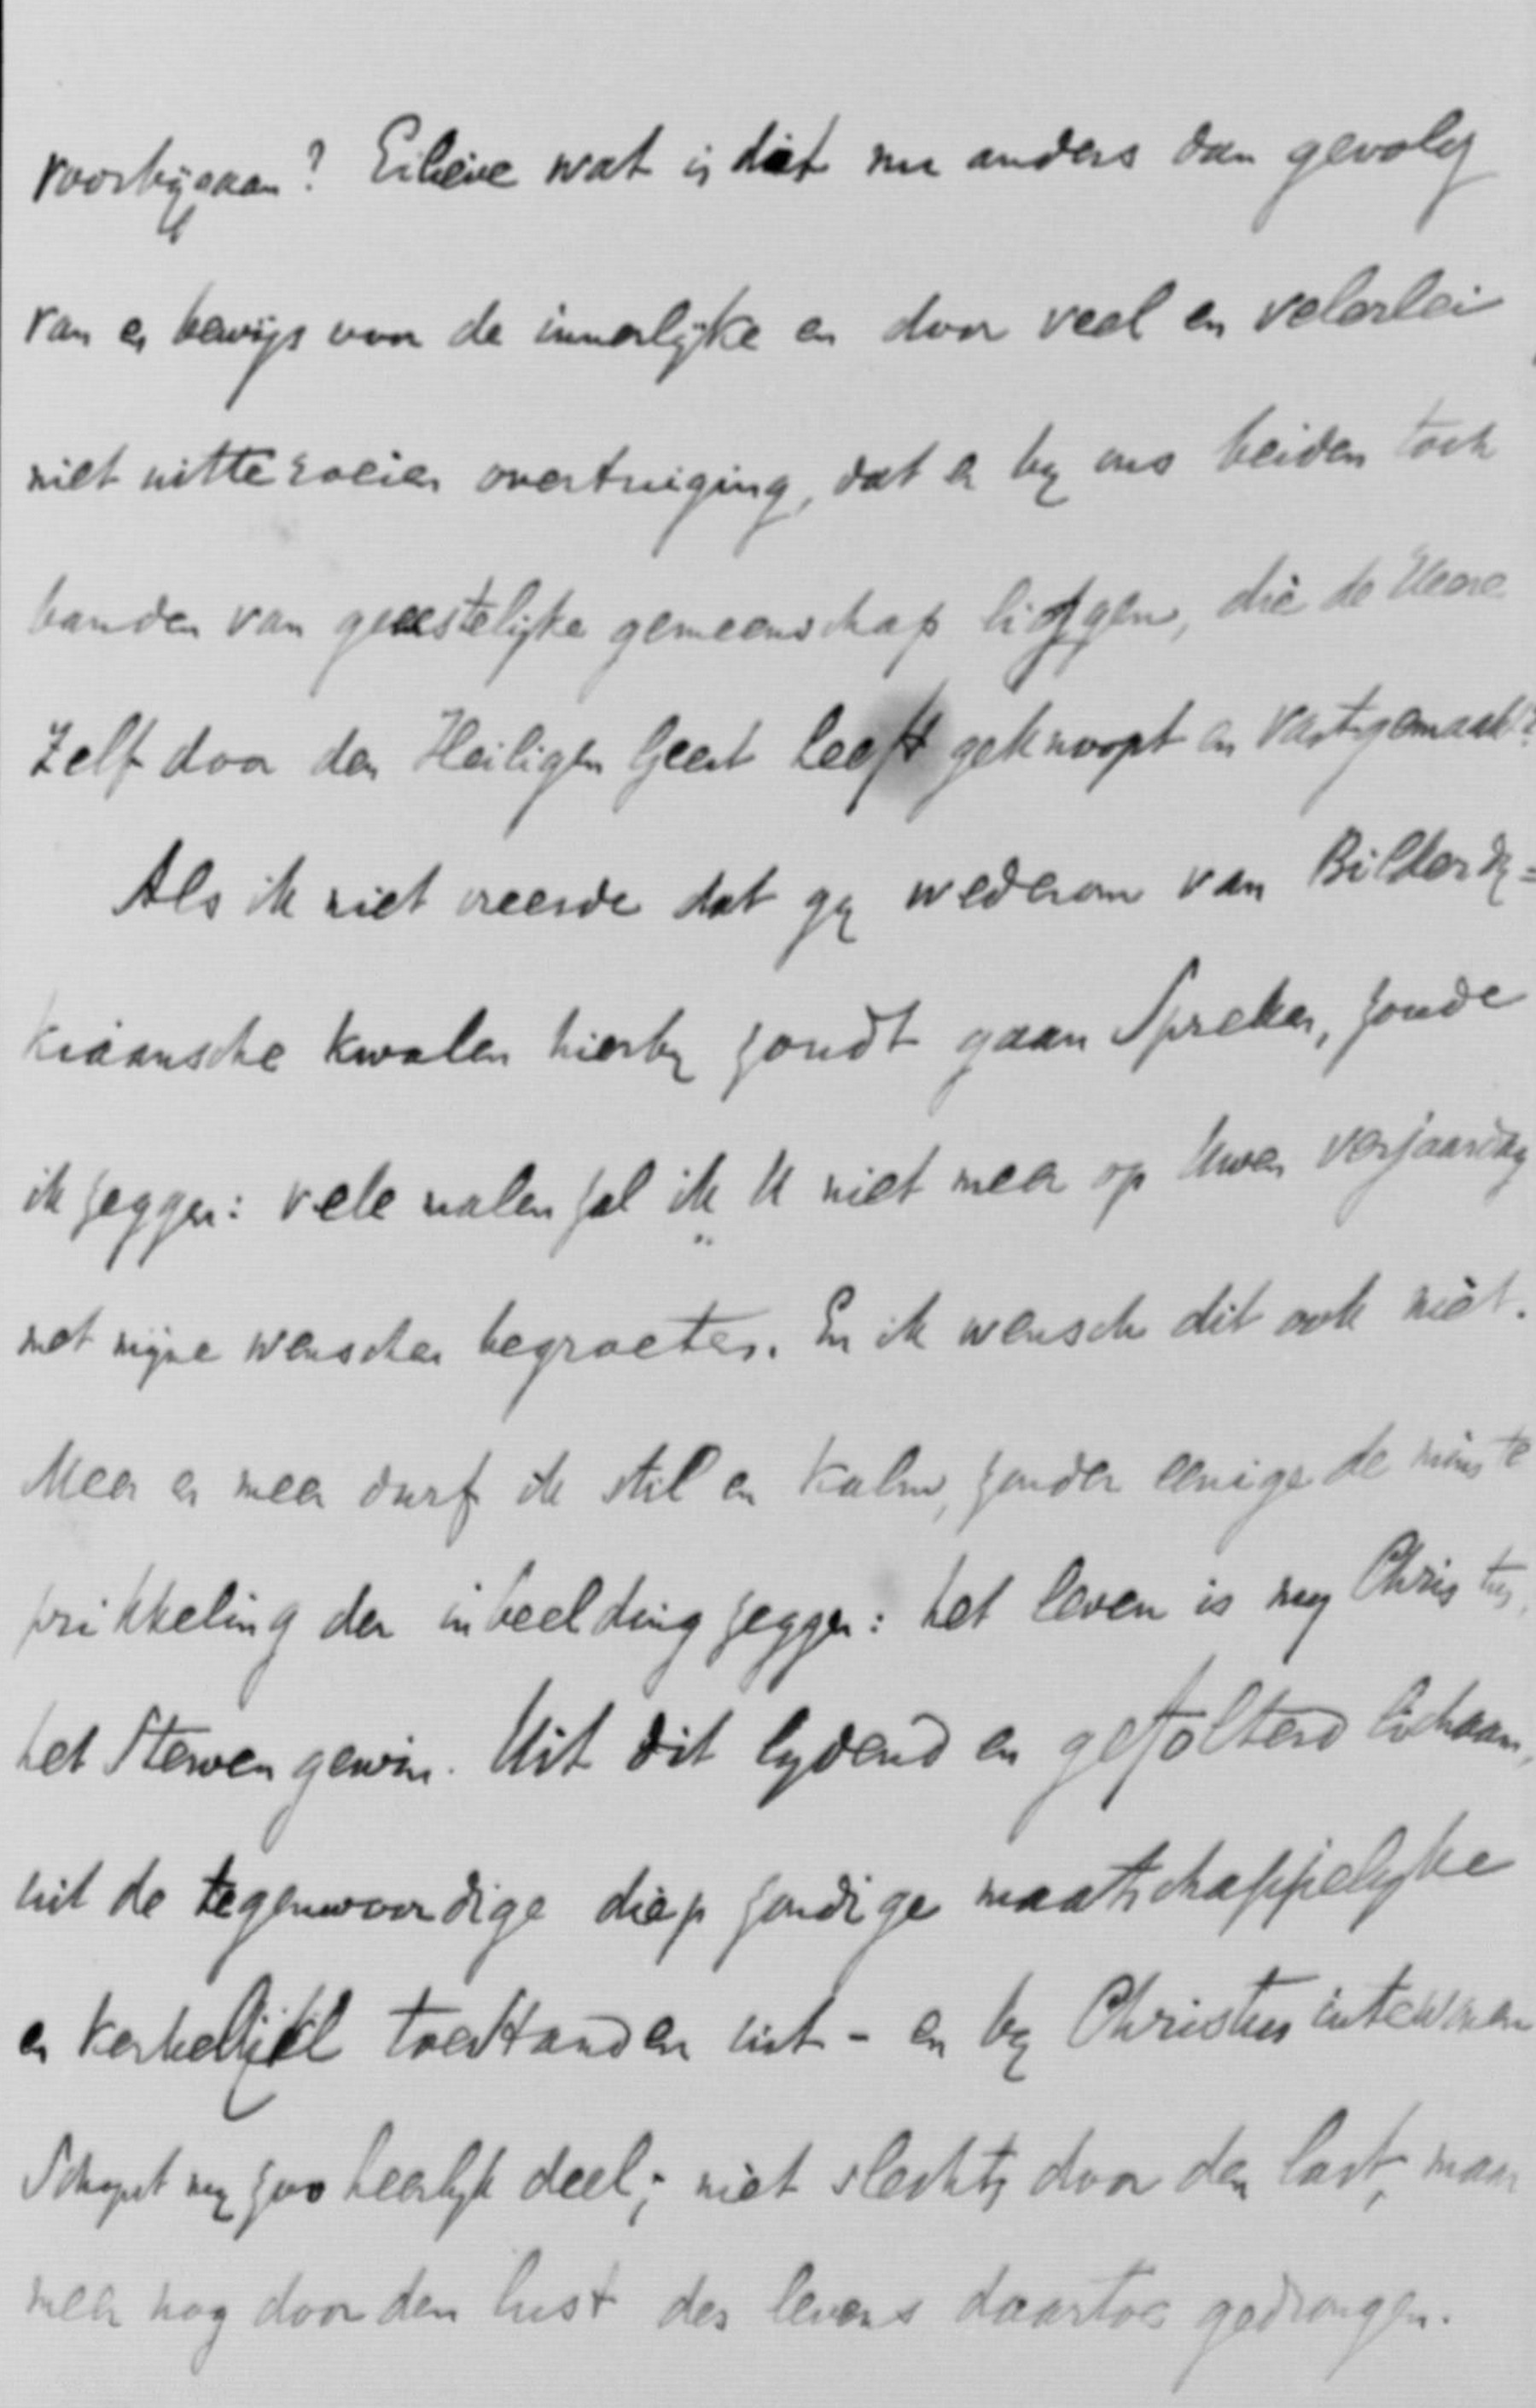 voorbijgaan? Eilieve wat is dit nu anders dan gevolg
van en bewijs voor de innerlijke en door veel en velerlei
niet uitteroeien overtuiging, dat er by ons beiden toch
banden van geestelijke gemeenschap liggen, die de Heere
Zelf door den Heiligen Geest heeft geknoopt en vastgemaakt?
Als ik niet vreesde dat gy wederom van Bilderdy=
kiaansche kwalen hierby zoudt gaan Spreken, zoude
ik zeggen: vele malen zal ik U niet meer op Uwen verjaardag
met mijne wenschen begroeten. En ik wensch dit ook niet.
Meer en meer durf ik stil en kalm, zonder eenige de minste
prikkeling der inbeelding zeggen: het leven is my Christus,
het Sterven gewin. Uit dit lydend en gefolterd lichaam,
uit de tegenwoordige diep zondige maatschappelyke
en kerkelijke toestanden uit - en by Christus
Schynt my zoo heerlyk deel; niet slechts door den last, maar
meer nog door den lust des levens daartoe gedrongen.